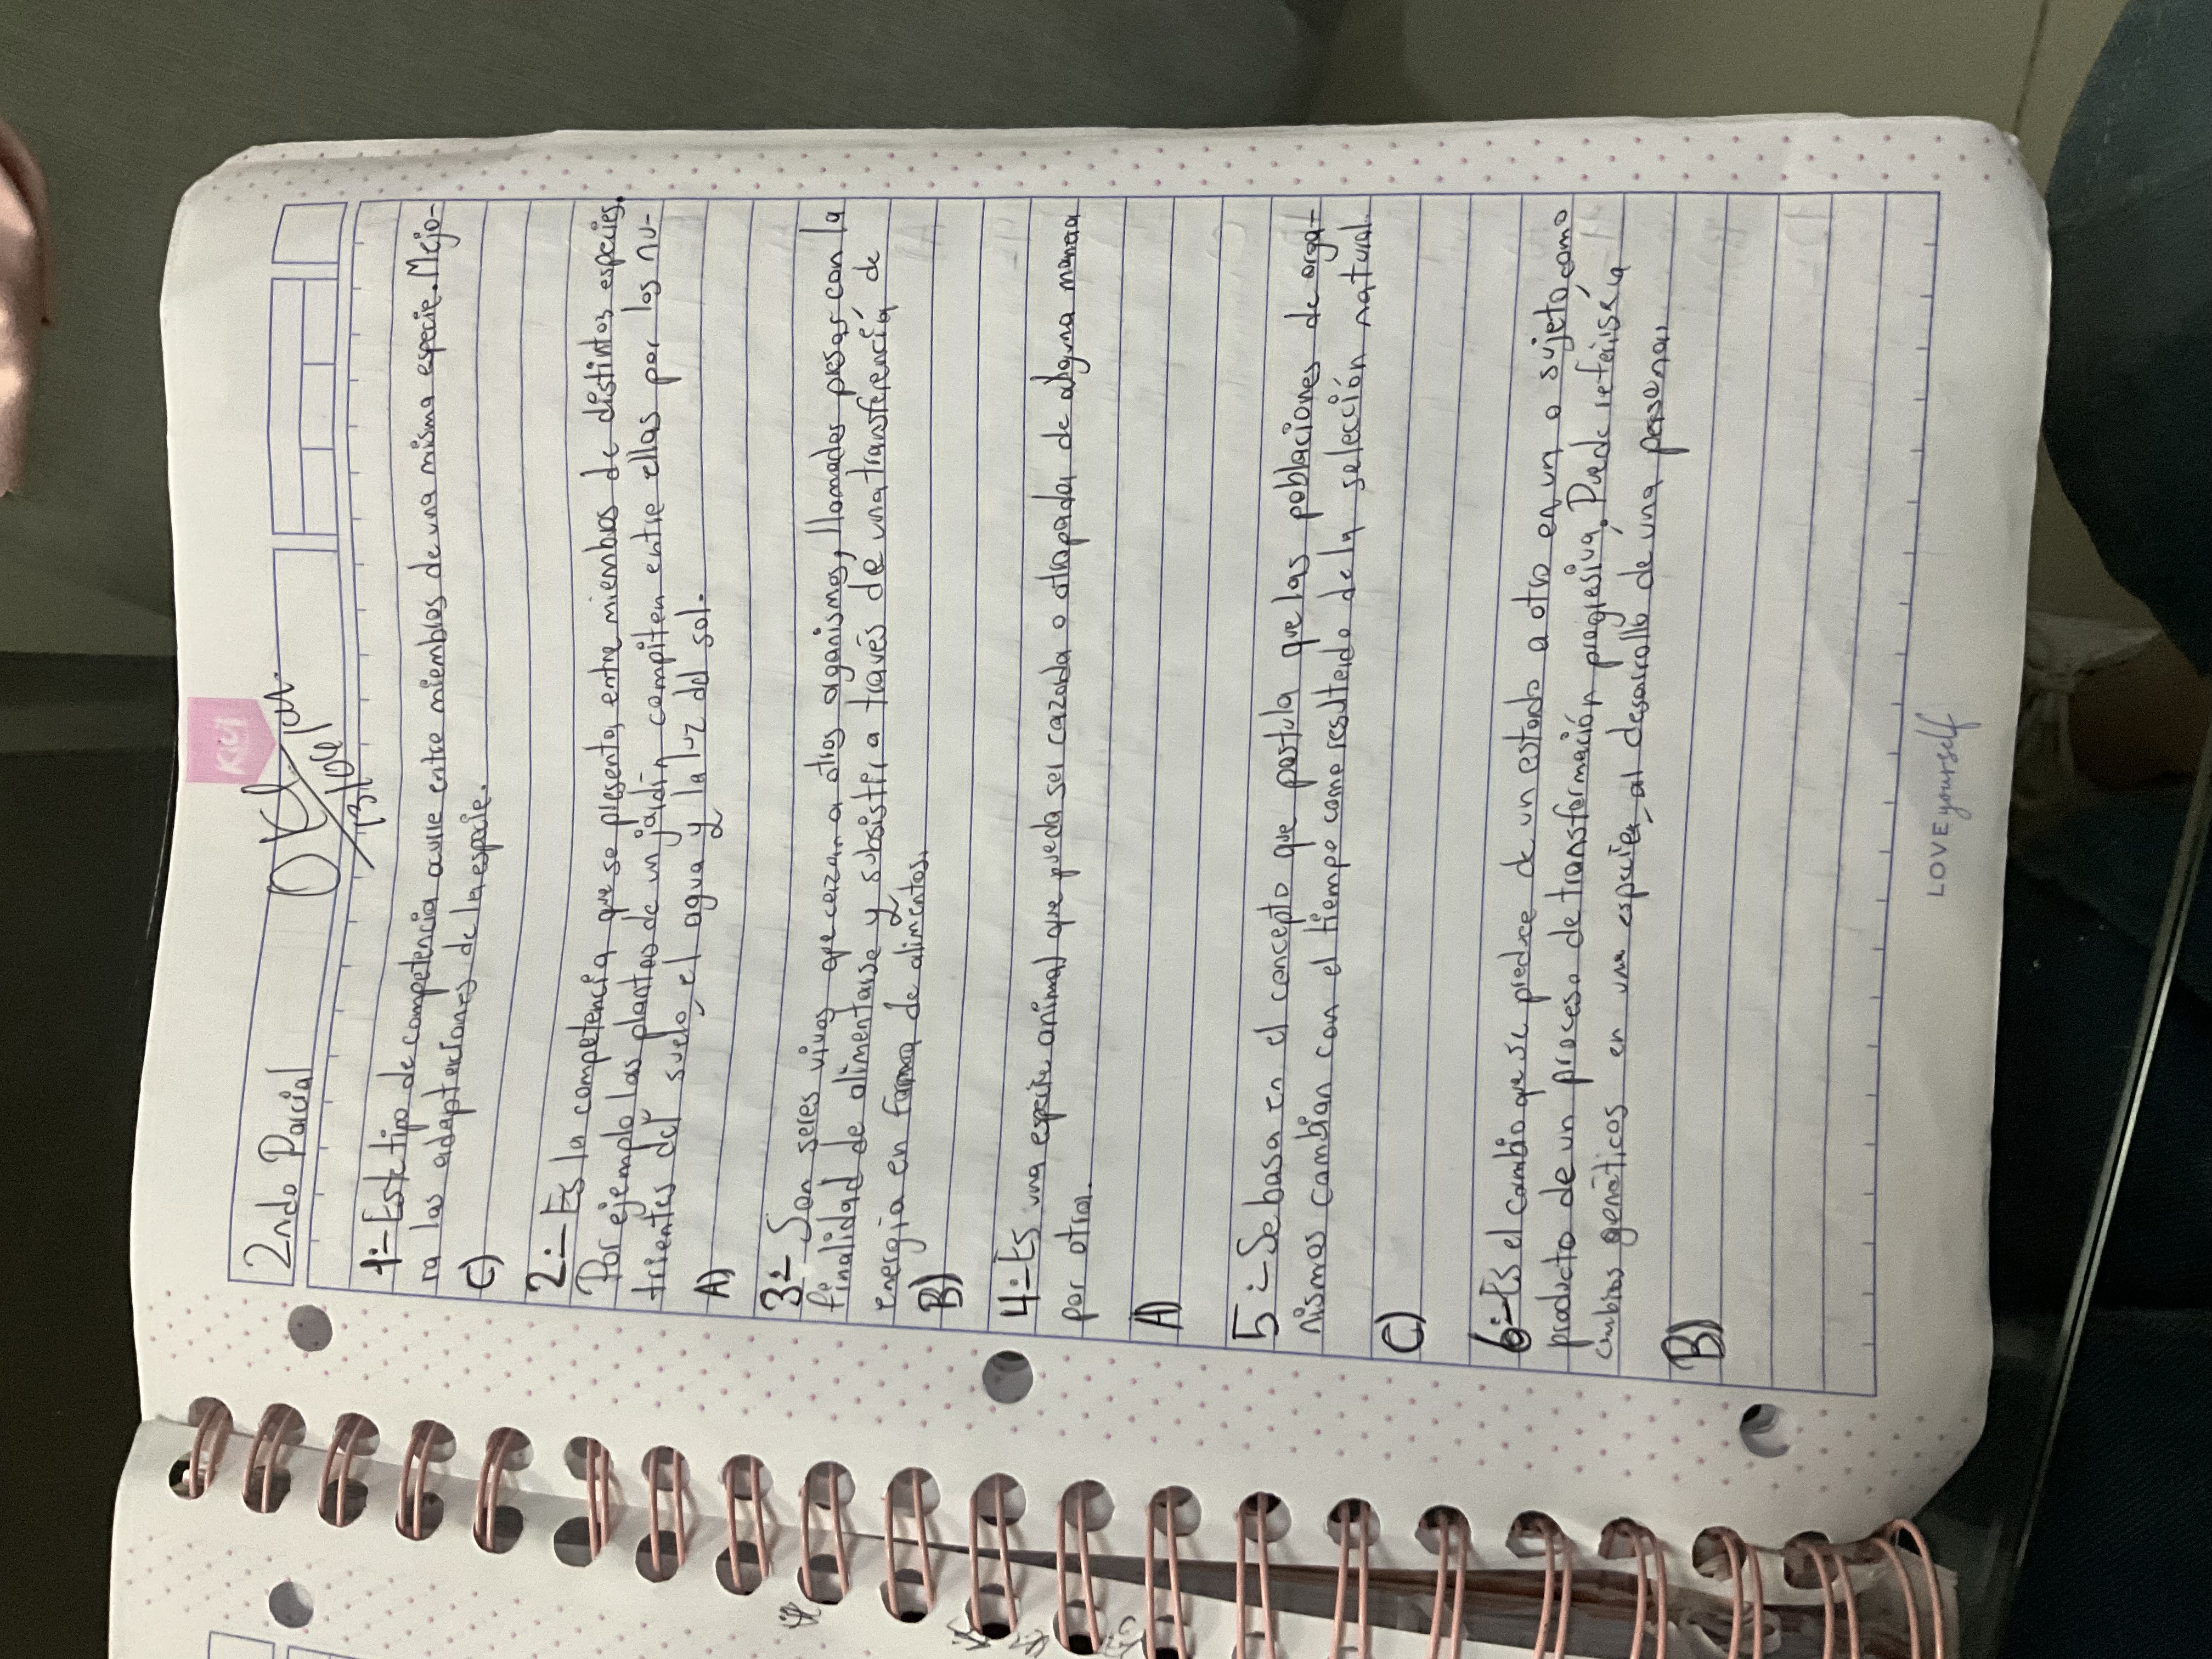 2ndo Parcial
1:- Este tipo de competencia ocurre entre miembros de una misma especie. Mejo-
ra las adaptaciones de la especie.
C)
2:- Es la competencia que se presenta, entre miembros de distintos especies.
Por ejemplo las plantas de un jardín compiten entre ellas por los nu-
trientes del suelo, el agua y la luz del sol.
A)
3:- Son seres vivos que cazan a otros organismos, llamados presas con la
finalidad de alimentarse y subsistir a través de una transferencia de
energia en forma de alimentos.
B)
4:- Es una especie animal que pueda ser cazada o atrapada de alguna manera
por otra.
A)
5:- Se basa en el concepto que postula que las poblaciones de orga-
nismos cambian con el tiempo como resultado de la selección natural.
C)
6:- Es el cambio que se produce de un estado a otro en un o sujeto, como
producto de un proceso de transformación progresiva. Puede referirse a
cambios genéticos en una especie, al desarrollo de una persona.
B)
LOVE yourself